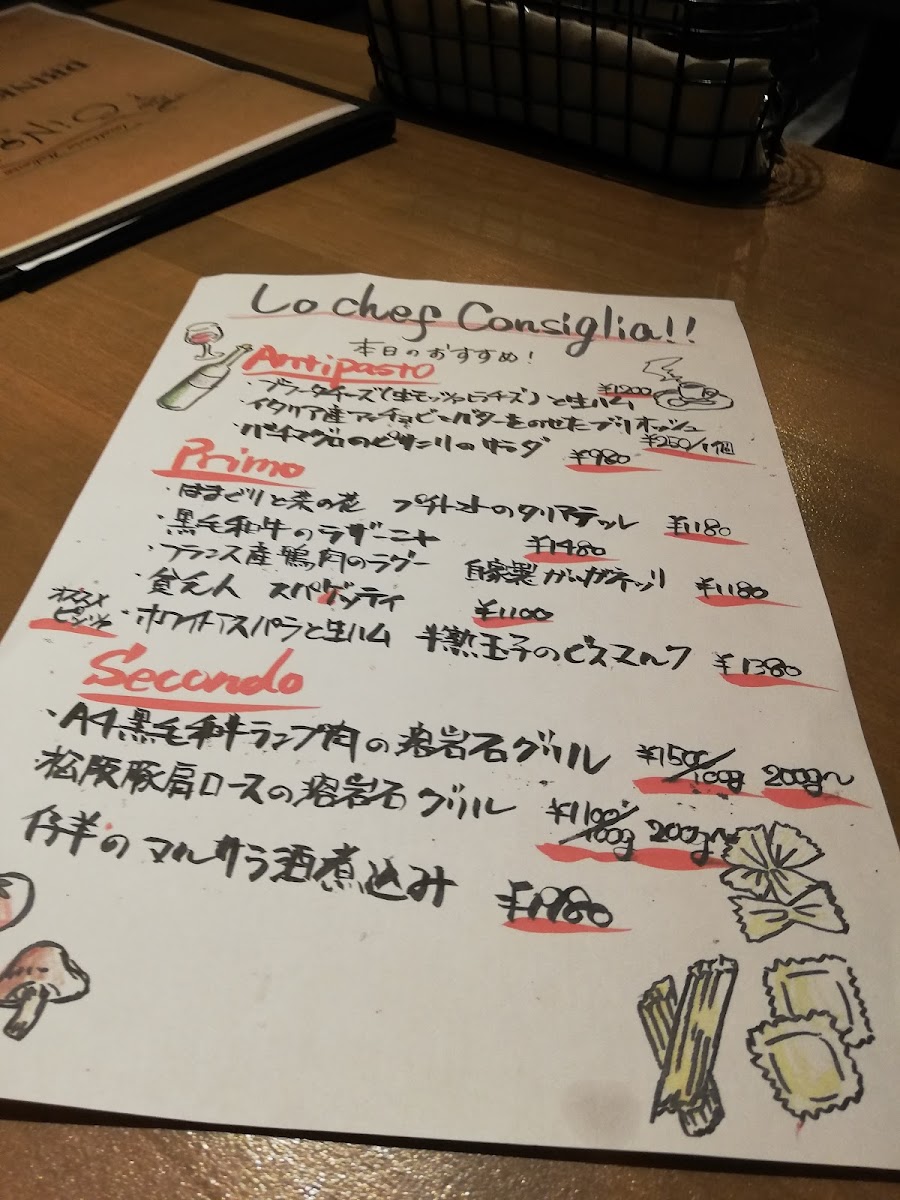 DRINK
Lo chef Consiglia!!
本日のおすすめ!
Antipasto
・ブラータチーズ(生モッツァレラチーズ)と生ハム ¥1200
・イタリア産アンチョビとバターをのせたブリオッシュ ¥250/1個
・バチマグロのピサニリのサラダ ¥980
Primo
・はまぐりと菜の花 プチトマトのタリアテッレ ¥1180
・黒毛和牛のラザーニャ ¥1480
・フランス産鴨肉のラグー 自家製ガルガネッリ ¥1180
・貧乏人 スパゲッティ ¥1100
オススメピッツァ ・ホワイトアスパラと生ハム 半熟玉子のビスマルク ¥1380
Secondo
・A4黒毛和牛ランプ肉の溶岩石グリル ¥1500/100g 200g〜
・松阪豚肩ロースの溶岩石グリル ¥1100/100g 200g〜
仔羊のマルサラ酒煮込み ¥1980